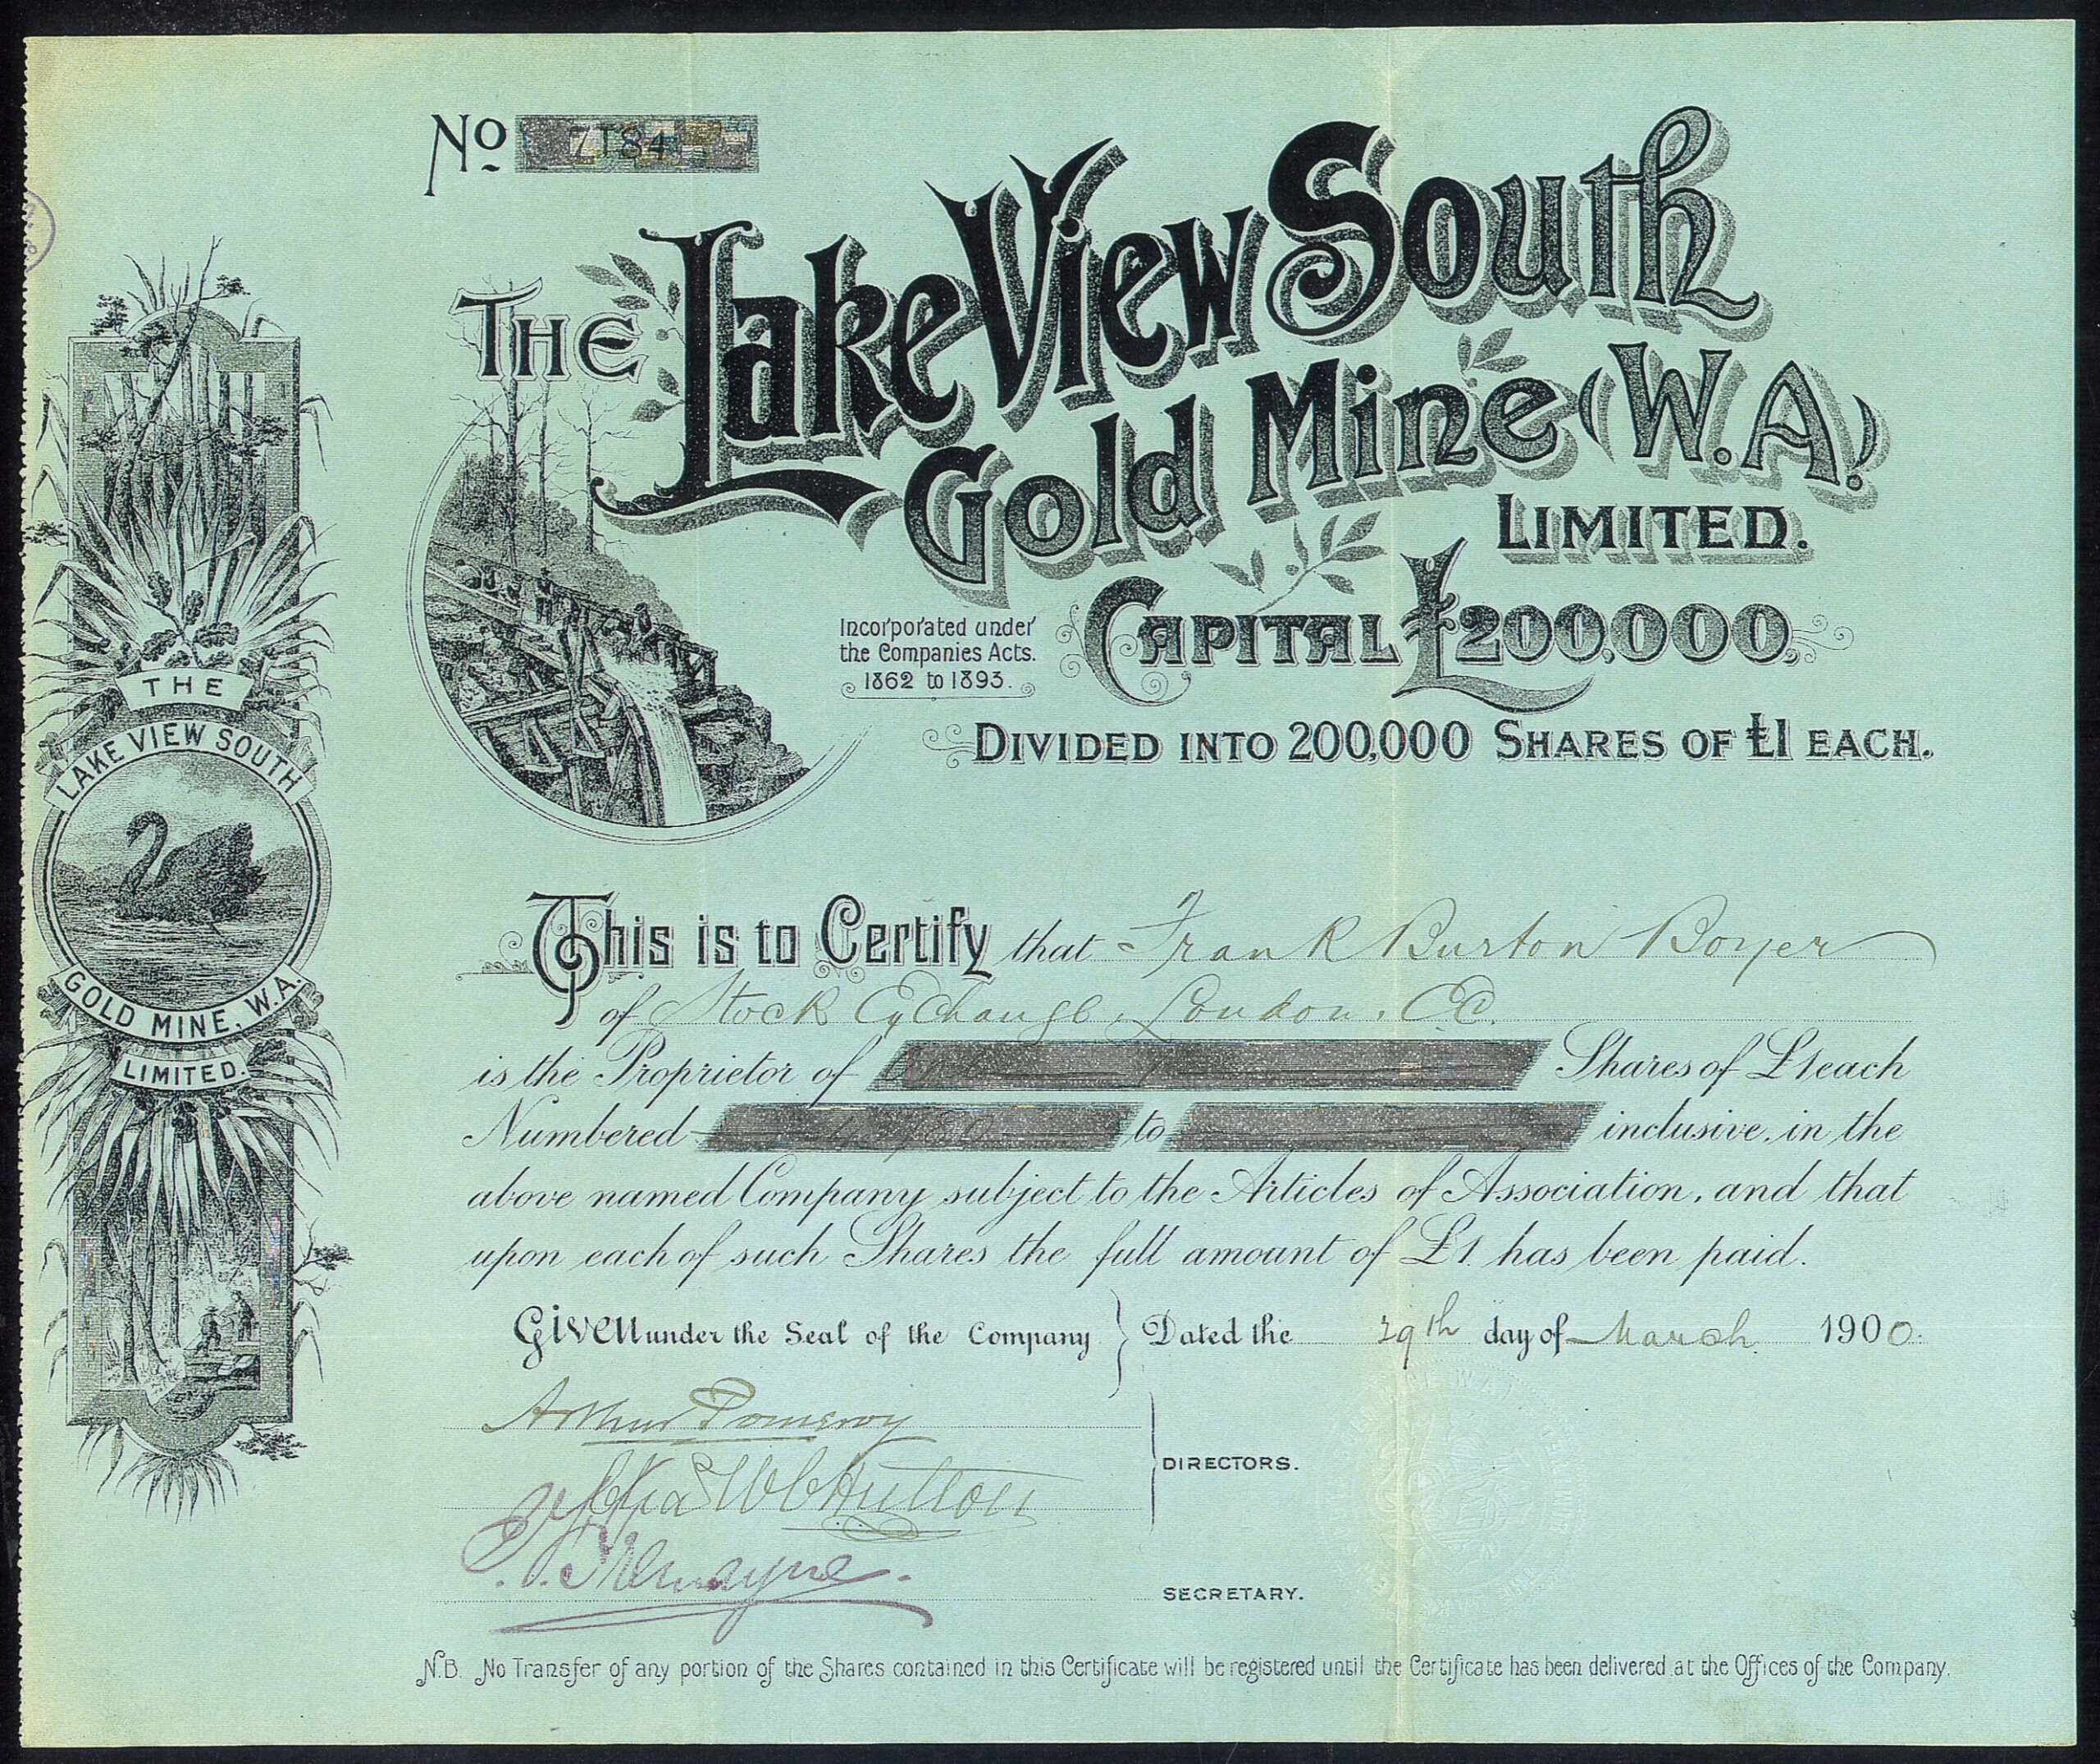 No 7184
The Lake View South
Gold Mine (W.A.)
Limited.
Incorporated under
the Companies Acts.
1862 to 1893.
Capital £200,000,
Divided into 200,000 Shares of £1 each.
THE
LAKE VIEW SOUTH
GOLD MINE, W.A.
LIMITED.
This is to Certify that Frank Burton Boyer
of Stock Exchange, London. E.C.
is the Proprietor of Shares of £1 each
Numbered to inclusive, in the
above named Company subject to the Articles of Association, and that
upon each of such Shares the full amount of £1. has been paid.
Given under the Seal of the Company Dated the 29th day of March 1900.
Arthur Pomeroy
DIRECTORS.
SECRETARY.
N.B. No Transfer of any portion of the Shares contained in this Certificate will be registered until the Certificate has been delivered at the Offices of the Company.